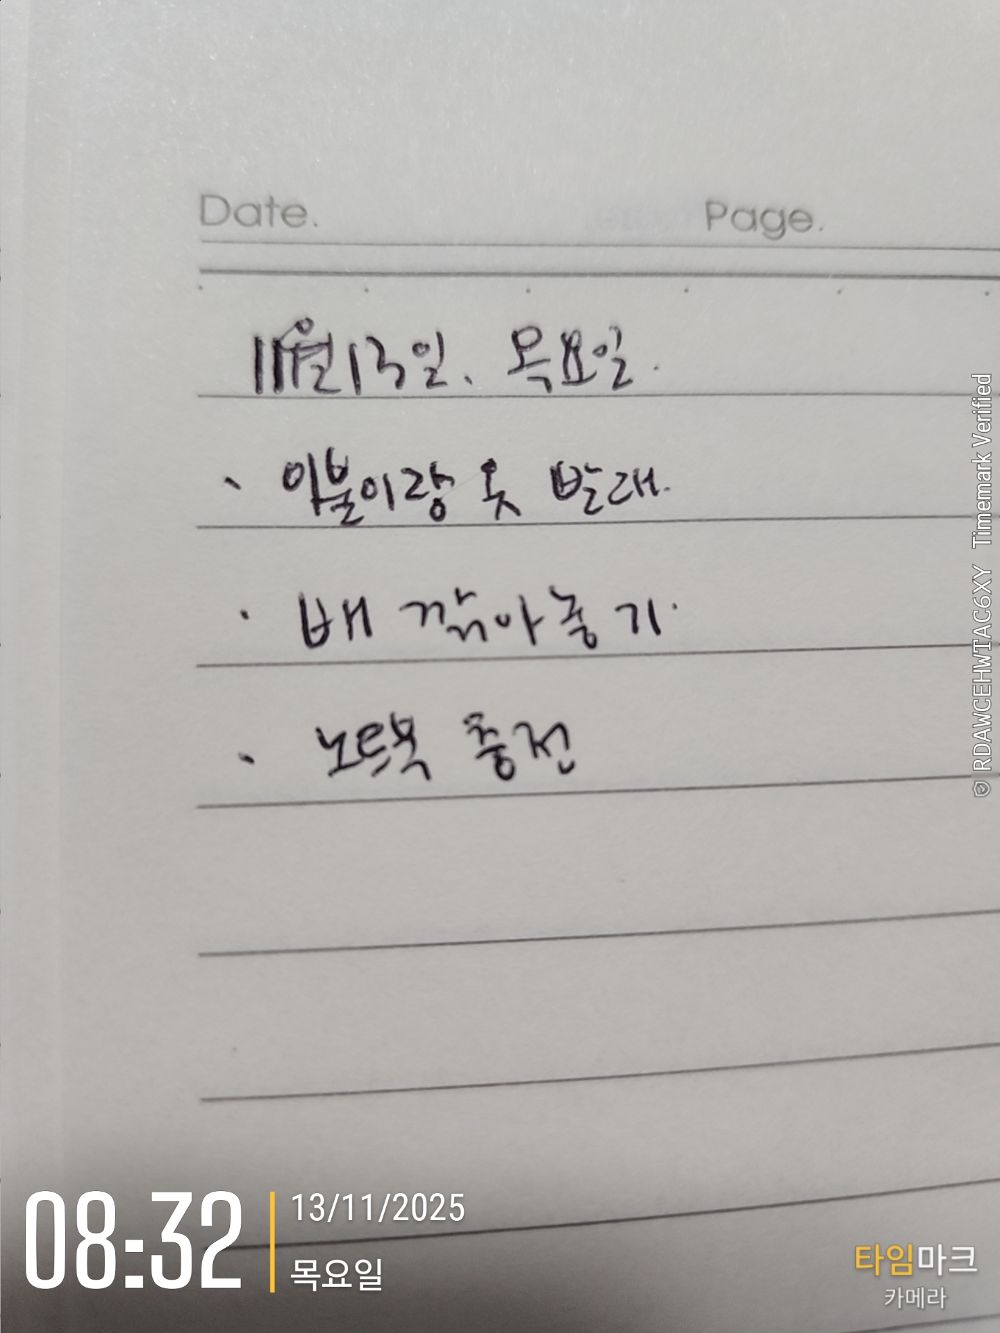 Date. Page.
11월 13일. 목요일.
· 이불이랑 옷 빨래.
· 배 깎아놓기.
· 노트북 충전
© RDAWCEHWIAC6XY Timemark Verified
08:32
13/11/2025
목요일
타임마크
카메라